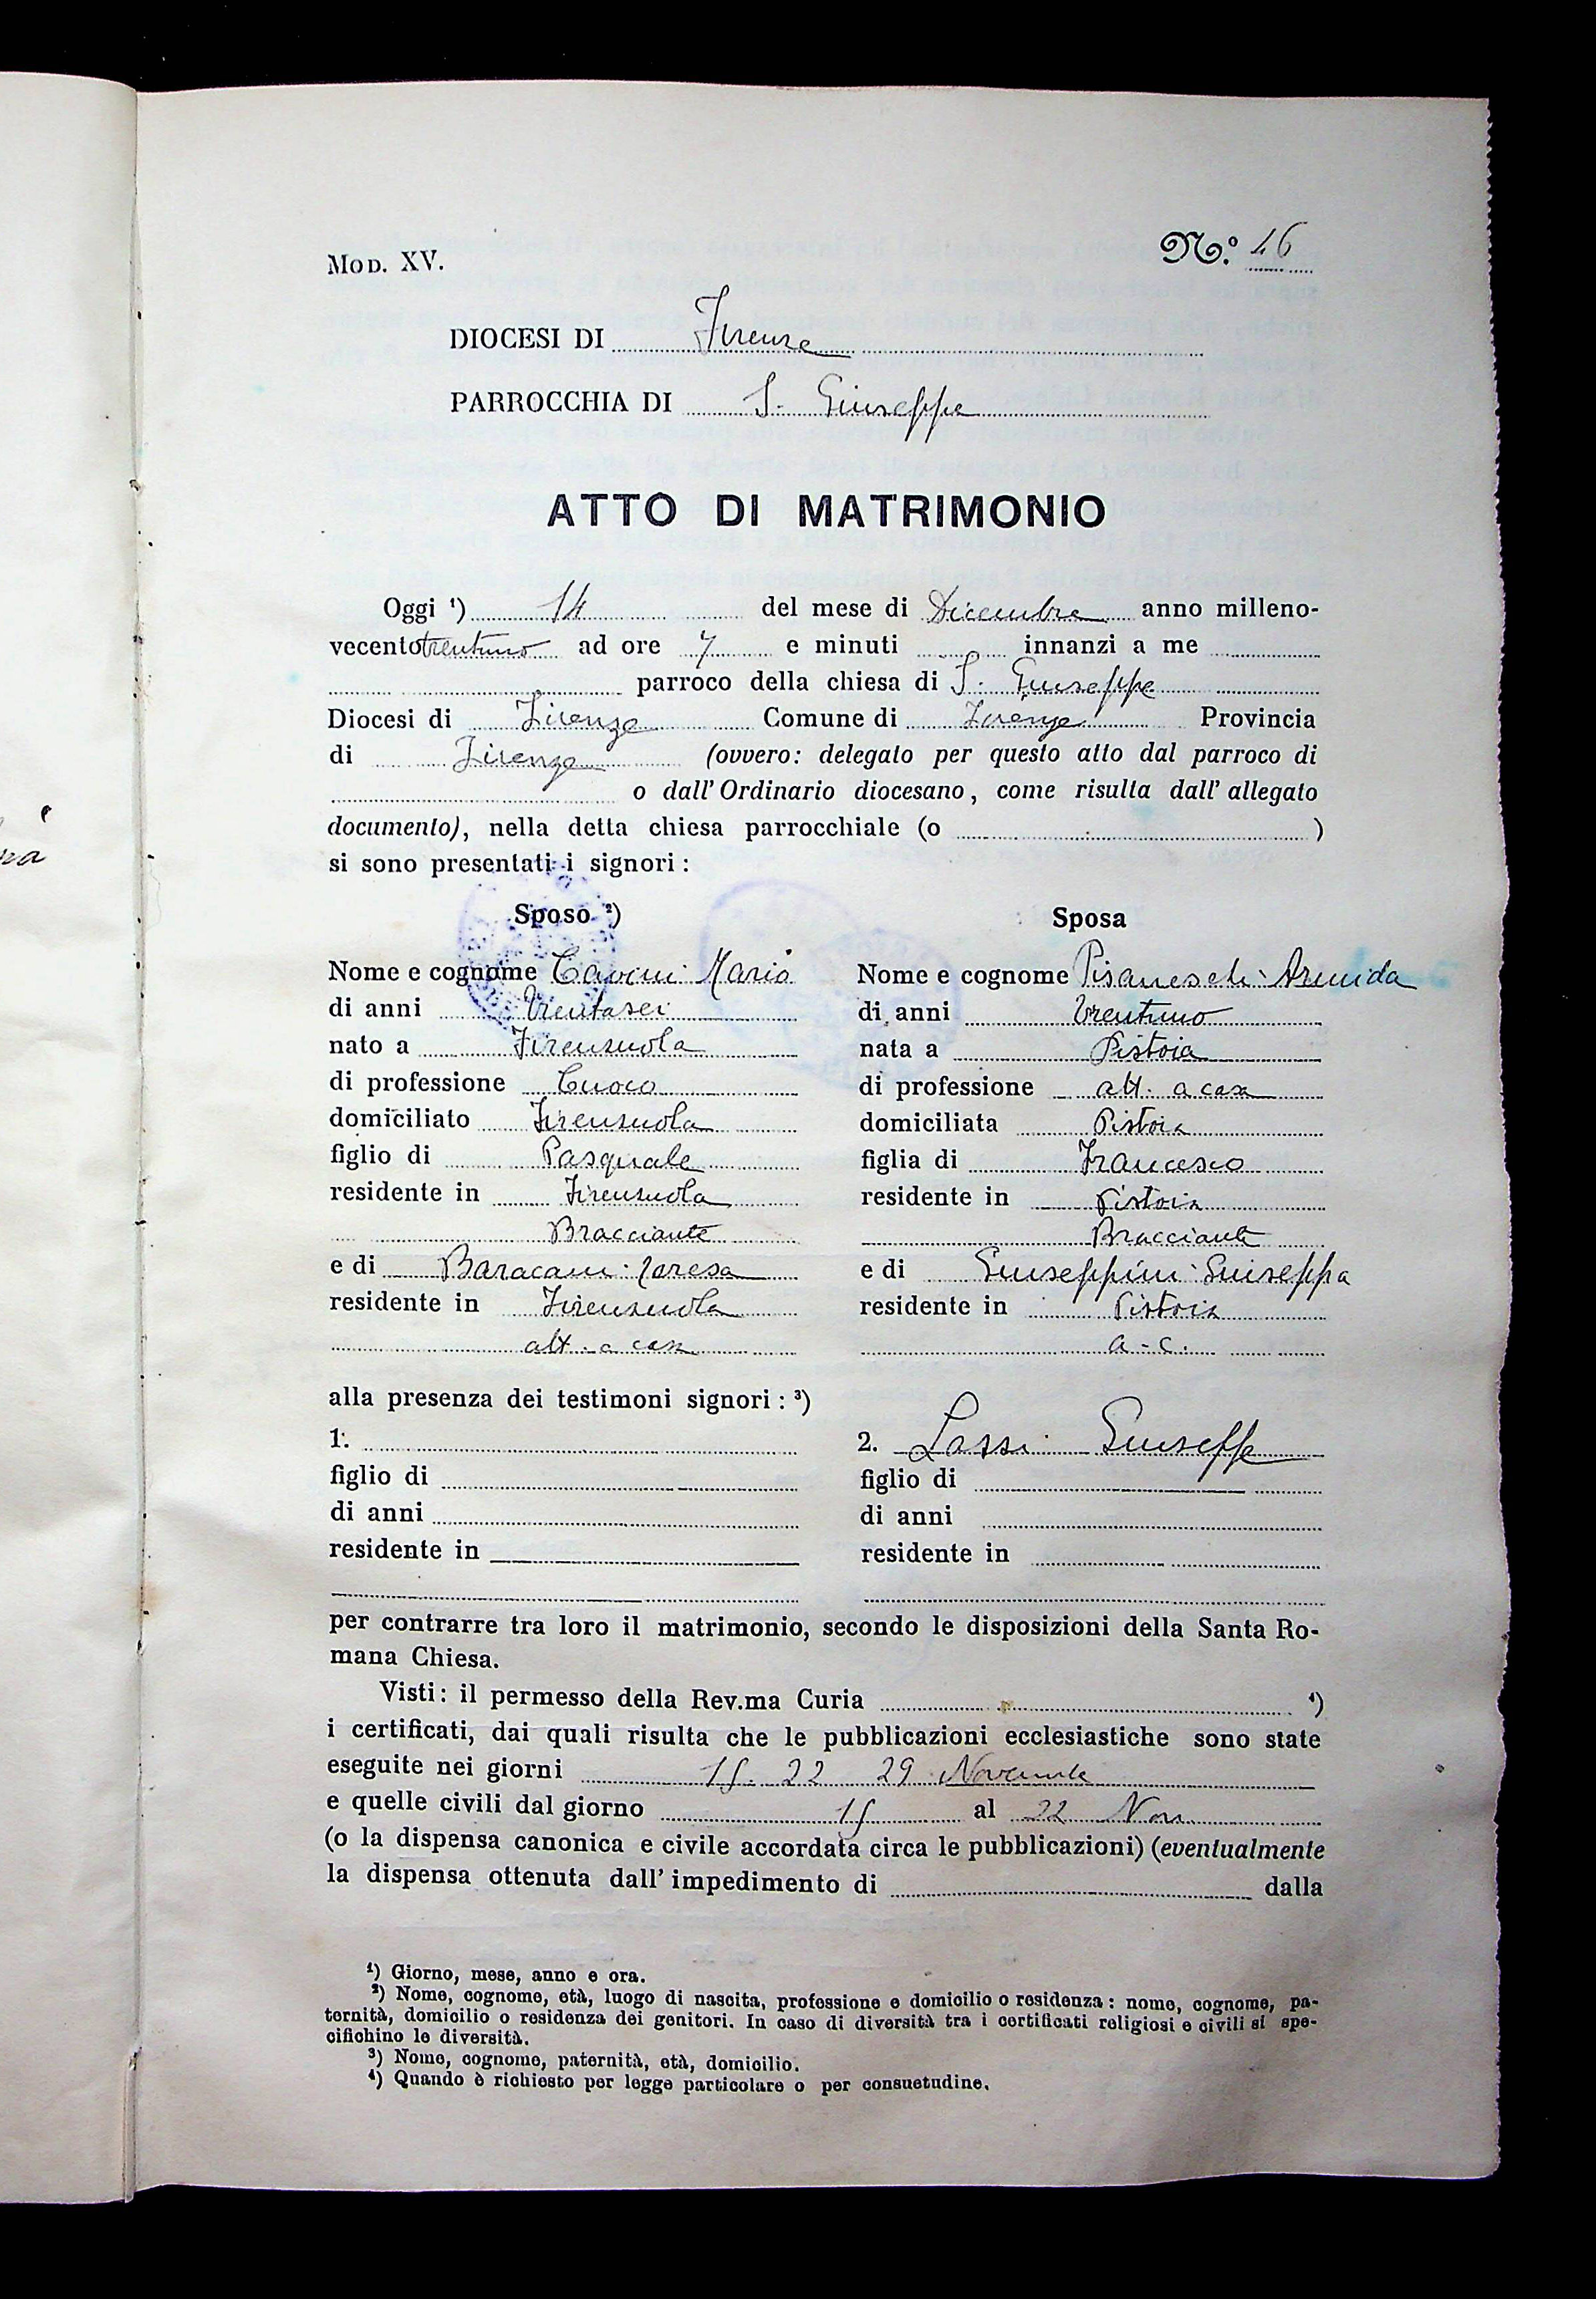 Mod. XV.
N.º 46
DIOCESI DI Firenze
PARROCCHIA DI S. Giuseppe
ATTO DI MATRIMONIO
Oggi ¹) 14 del mese di Dicembre anno milleno-
vecento trentuno ad ore 7 e minuti innanzi a me
parroco della chiesa di S. Giuseppe
Diocesi di Firenze Comune di Firenze Provincia
di Firenze (ovvero: delegato per questo atto dal parroco di
o dall' Ordinario diocesano, come risulta dall' allegato
documento), nella detta chiesa parrocchiale (o )
si sono presentati i signori:
Sposo ²)
Nome e cognome Cavini Mario
di anni Trentasei
nato a Firenzuola
di professione Cuoco
domiciliato Firenzuola
figlio di Pasquale
residente in Firenzuola
Bracciante
e di Baracani Teresa
residente in Firenzuola
att. a casa
Sposa
Nome e cognome Pisaneschi Armida
di anni trentuno
nata a Pistoia
di professione att. a casa
domiciliata Pistoia
figlia di Francesco
residente in Pistoia
Bracciante
e di Giuseppini Giuseppa
residente in Pistoia
a. c.
alla presenza dei testimoni signori: ³)
1.
figlio di
di anni
residente in
2. Lassi Giuseppe
figlio di
di anni
residente in
per contrarre tra loro il matrimonio, secondo le disposizioni della Santa Ro-
mana Chiesa.
Visti: il permesso della Rev.ma Curia ⁴)
i certificati, dai quali risulta che le pubblicazioni ecclesiastiche sono state
eseguite nei giorni 15. 22 29 Novembre
e quelle civili dal giorno 15 al 22 Nov.
(o la dispensa canonica e civile accordata circa le pubblicazioni) (eventualmente
la dispensa ottenuta dall' impedimento di dalla
¹) Giorno, mese, anno e ora.
²) Nome, cognome, età, luogo di nascita, professione e domicilio o residenza: nome, cognome, pa-
ternità, domicilio o residenza dei genitori. In caso di diversità tra i certificati religiosi e civili si spe-
cifichino le diversità.
³) Nome, cognome, paternità, età, domicilio.
⁴) Quando è richiesto per legge particolare o per consuetudine.